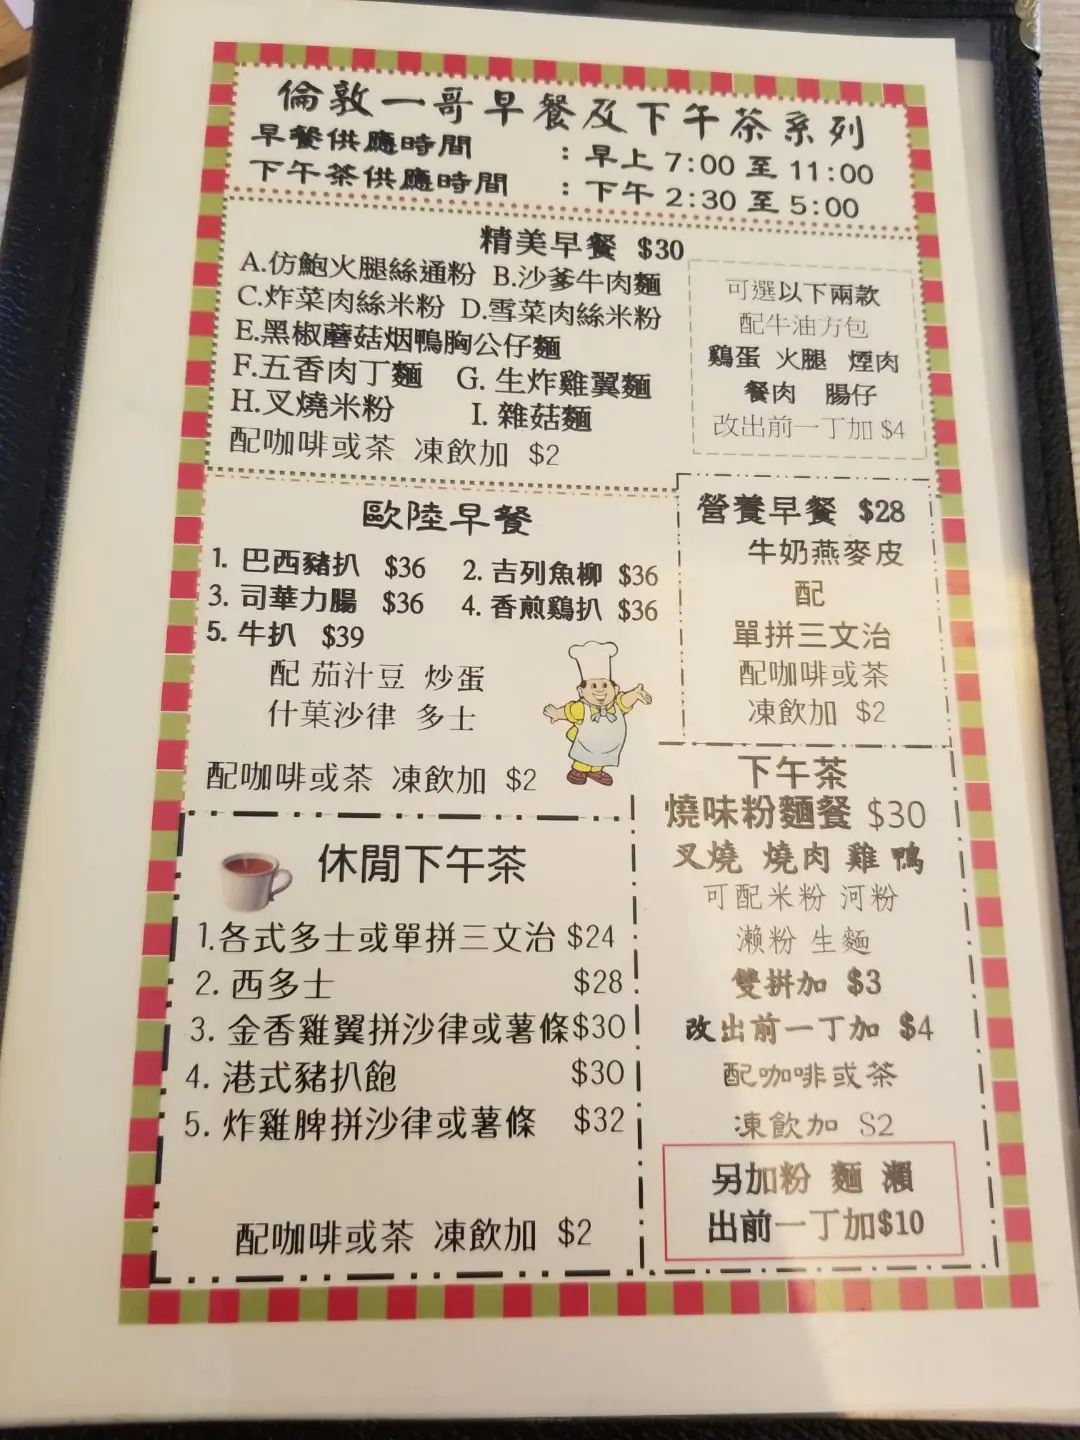 倫敦一哥早餐及下午茶系列
早餐供應時間 : 早上 7:00 至 11:00
下午茶供應時間 : 下午 2:30 至 5:00
精美早餐 $30
A.仿鮑火腿絲通粉 B.沙爹牛肉麵
C.炸菜肉絲米粉 D.雪菜肉絲米粉
E.黑椒蘑菇烟鴨胸公仔麵
F.五香肉丁麵 G. 生炸雞翼麵
H.叉燒米粉 I. 雜菇麵
配咖啡或茶 凍飲加 $2
可選以下兩款
配牛油方包
鷄蛋 火腿 煙肉
餐肉 腸仔
改出前一丁加 $4
歐陸早餐
1. 巴西豬扒 $36 2. 吉列魚柳 $36
3. 司華力腸 $36 4. 香煎鷄扒 $36
5. 牛扒 $39
配 茄汁豆 炒蛋
什菓沙律 多士
配咖啡或茶 凍飲加 $2
營養早餐 $28
牛奶燕麥皮
配
單拼三文治
配咖啡或茶
凍飲加 $2
休閒下午茶
1.各式多士或單拼三文治 $24
2. 西多士 $28
3. 金香雞翼拼沙律或薯條$30
4. 港式豬扒飽 $30
5. 炸雞脾拼沙律或薯條 $32
配咖啡或茶 凍飲加 $2
下午茶
燒味粉麵餐 $30
叉燒 燒肉 雞 鴨
可配米粉 河粉
瀨粉 生麵
雙拼加 $3
改出前一丁加 $4
配咖啡或茶
凍飲加 $2
另加粉 麵 瀨
出前一丁加$10